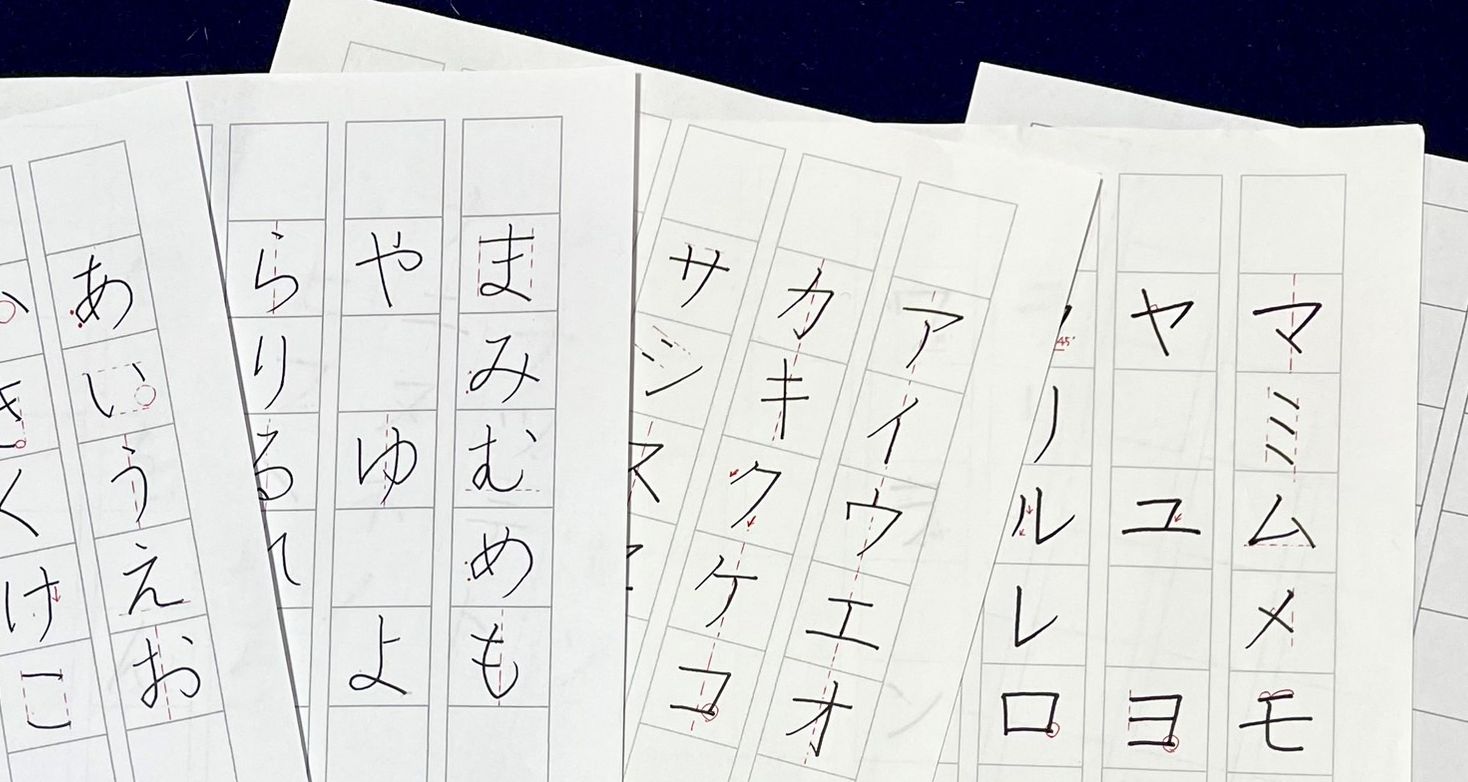 あいうえお
くけこ
まみむめも
やゆよ
らりる
アイウエオ
カキクケコ
サシス
マミムメモ
ヤユヨ
ルレロ